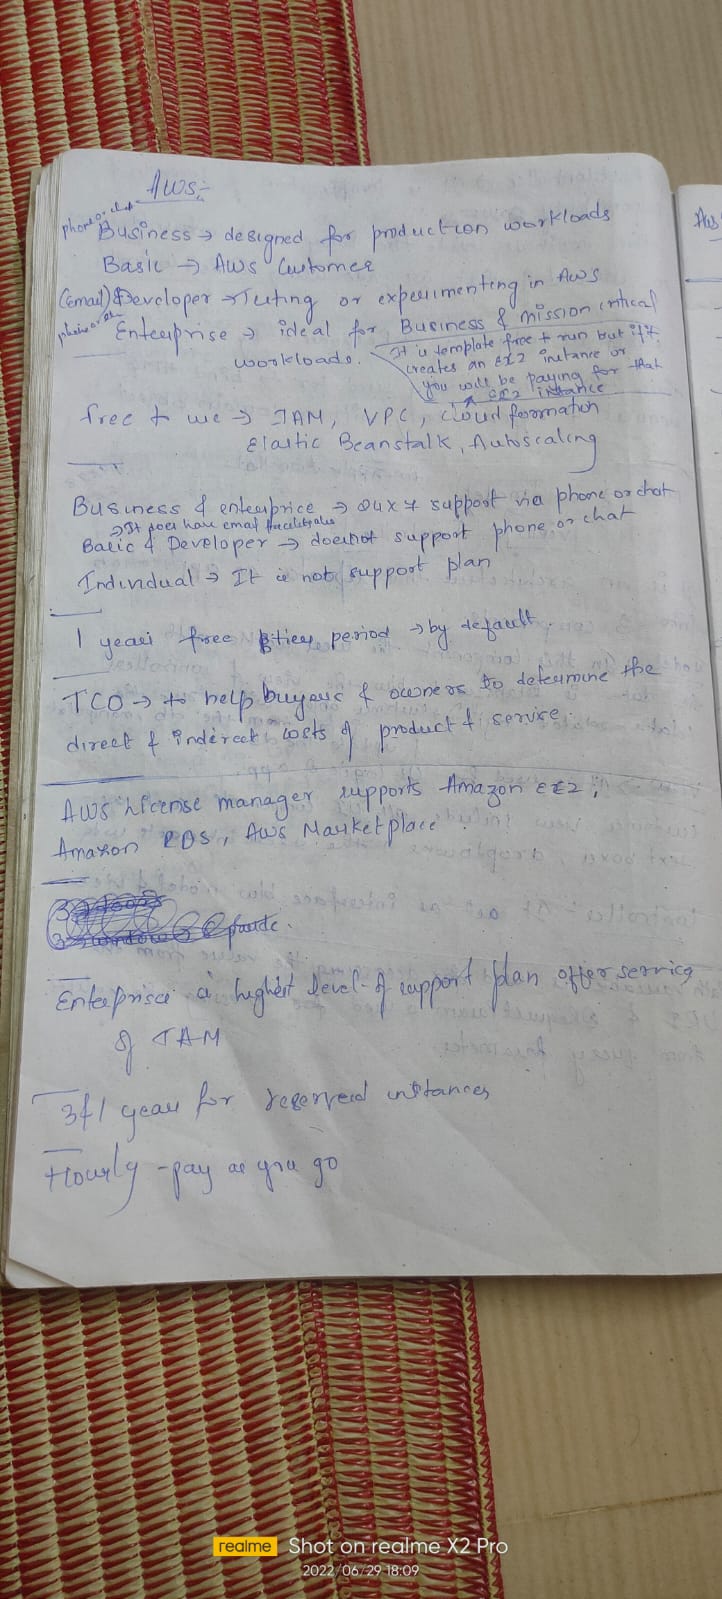 AWS:-
phone or chat
Business → designed for production workloads
Basic → AWS Customer
(email) Developer → Testing or experimenting in AWS
phone or chat
Enterprise → ideal for Business & mission critical
workloads.
It is template free to run but if it
creates an EC2 instance or
you will be paying for that
EC2 instance
free to use → IAM, VPC, Cloud formation
Elastic Beanstalk, Autoscaling
Business & enterprice → 24x7 support via phone or chat
→ It does have email
Basic & Developer → doesnot support phone or chat
Individual → It is not support plan
1 year free tier period → by default.
TCO → to help buyers & owners to determine the
direct & inderect costs of product & service.
AWS License manager supports Amazon EC2,
Amazon RDS, AWS Marketplace
Enterprise is highest level of support plan offer service
of TAM
3 & 1 year for reserved instances
Hourly - pay as you go
AWS
realme Shot on realme X2 Pro
2022/06/29 18:09